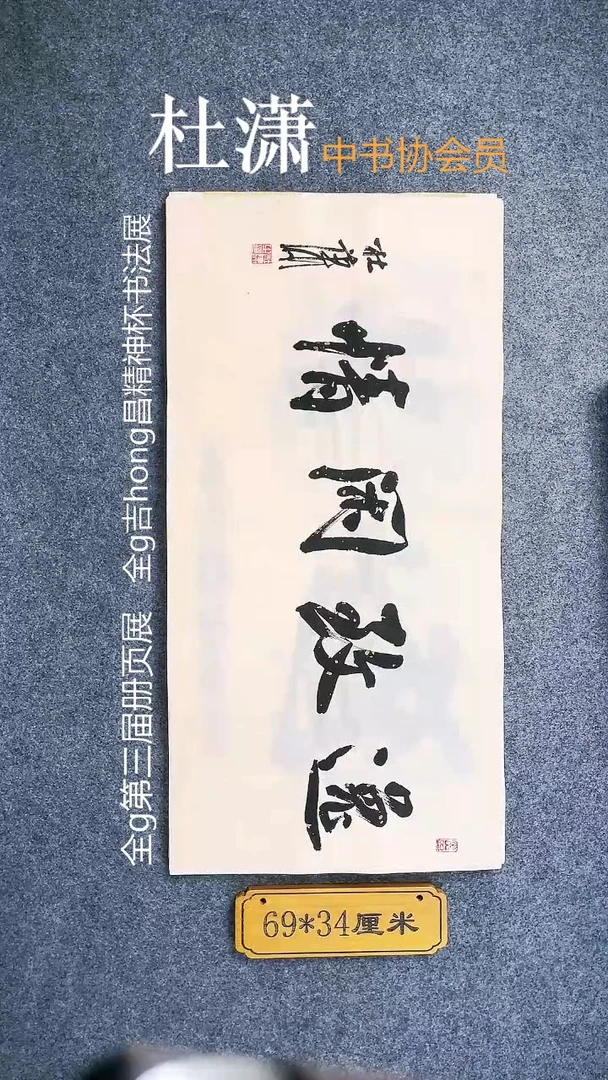 杜潇 中书协会员
全g第三届册页展 全g吉hong昌精神杯书法展
逸致闲情
杜潇
69*34厘米